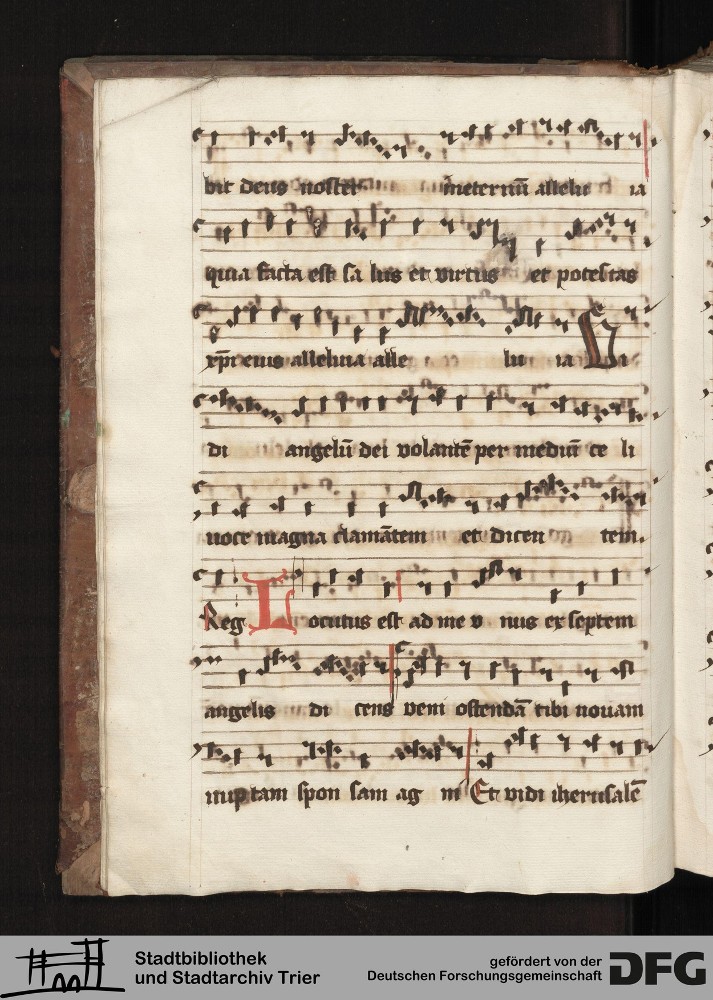 bit deus noster ineternū allelu ia
quia facta est sa lus et virtus et potestas
xpī eius alleluia alle lu ia U i
di angelū dei volantē per mediū ce li
voce magna clamātem et dicen tem.
Reg L ocutus est ad me v nus ex septem
angelis di cens veni ostendā tibi nouam
nuptam spon sam ag ni Et vidi iherusalē
Stadtbibliothek
und Stadtarchiv Trier
gefördert von der
Deutschen Forschungsgemeinschaft
DFG